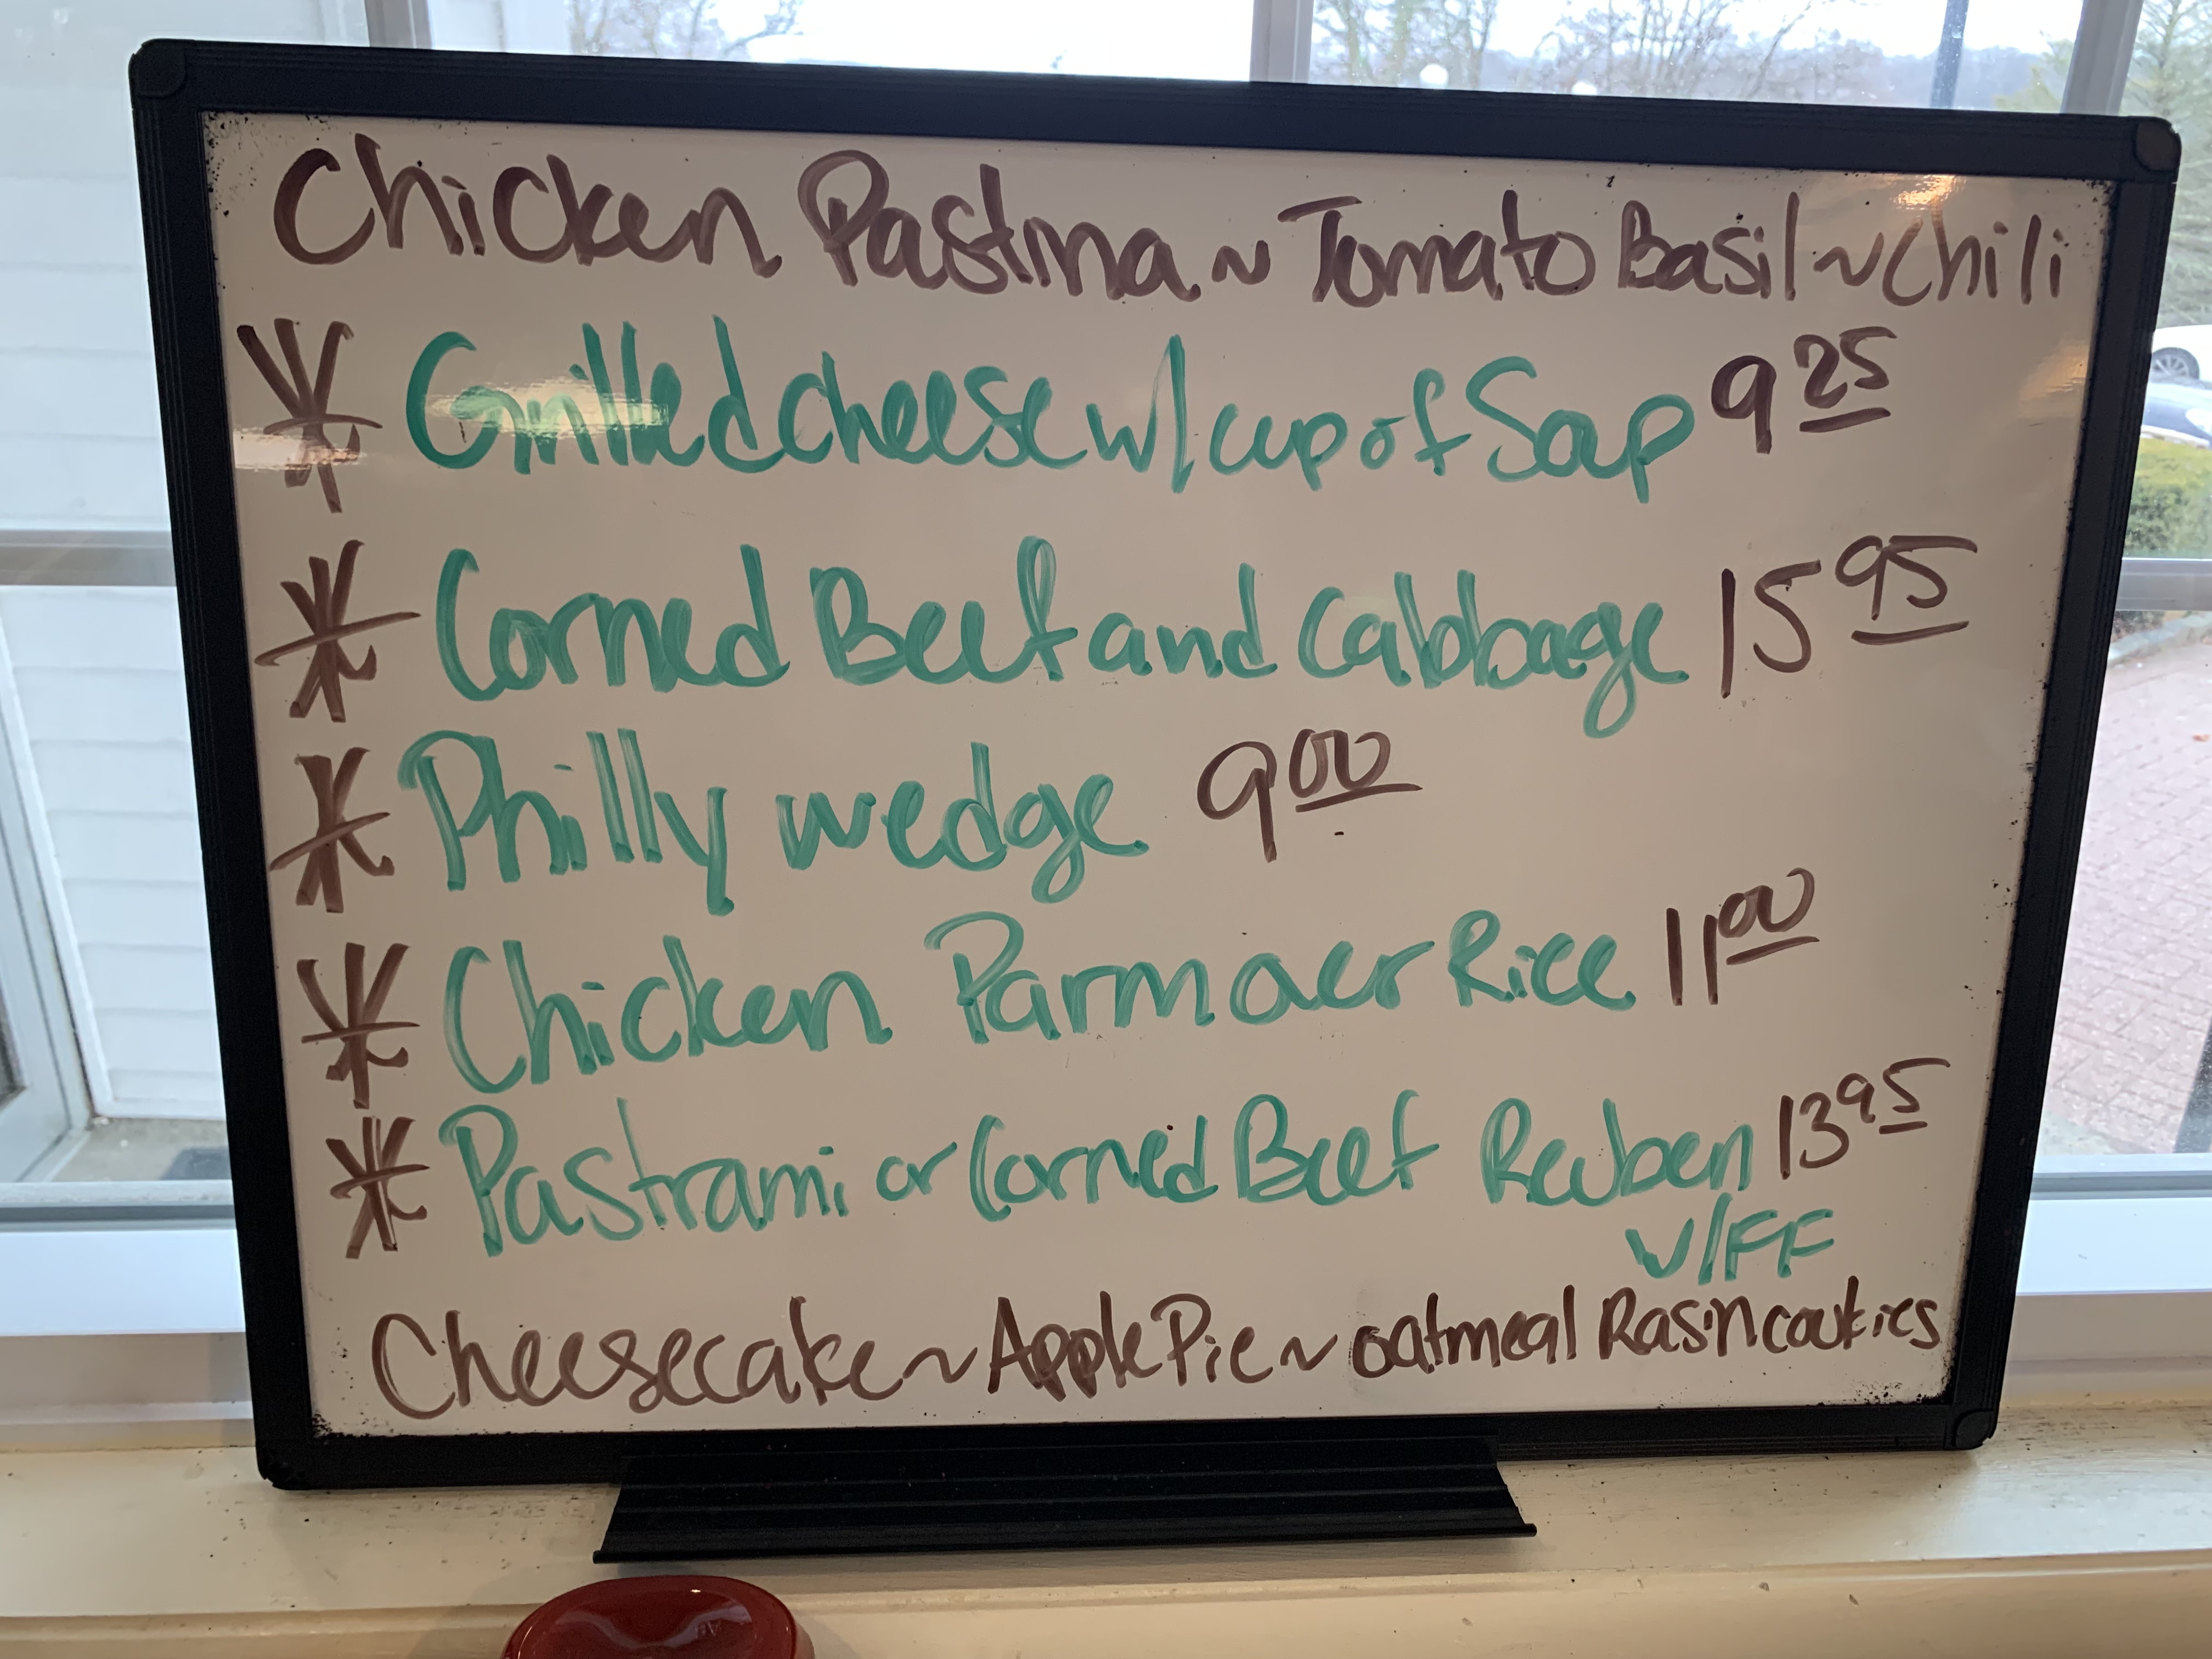 Chicken Pastina ~ Tomato Basil ~ chili
* Grilled cheese w/ cup of Soup 9 25
* Corned Beef and Cabbage 15 95
* Philly wedge 9 00
* Chicken Parm over Rice 11 00
* Pastrami or Corned Beef Reuben 13 95
w/FF
Cheesecake ~ Apple Pie ~ oatmeal Rasin cookies